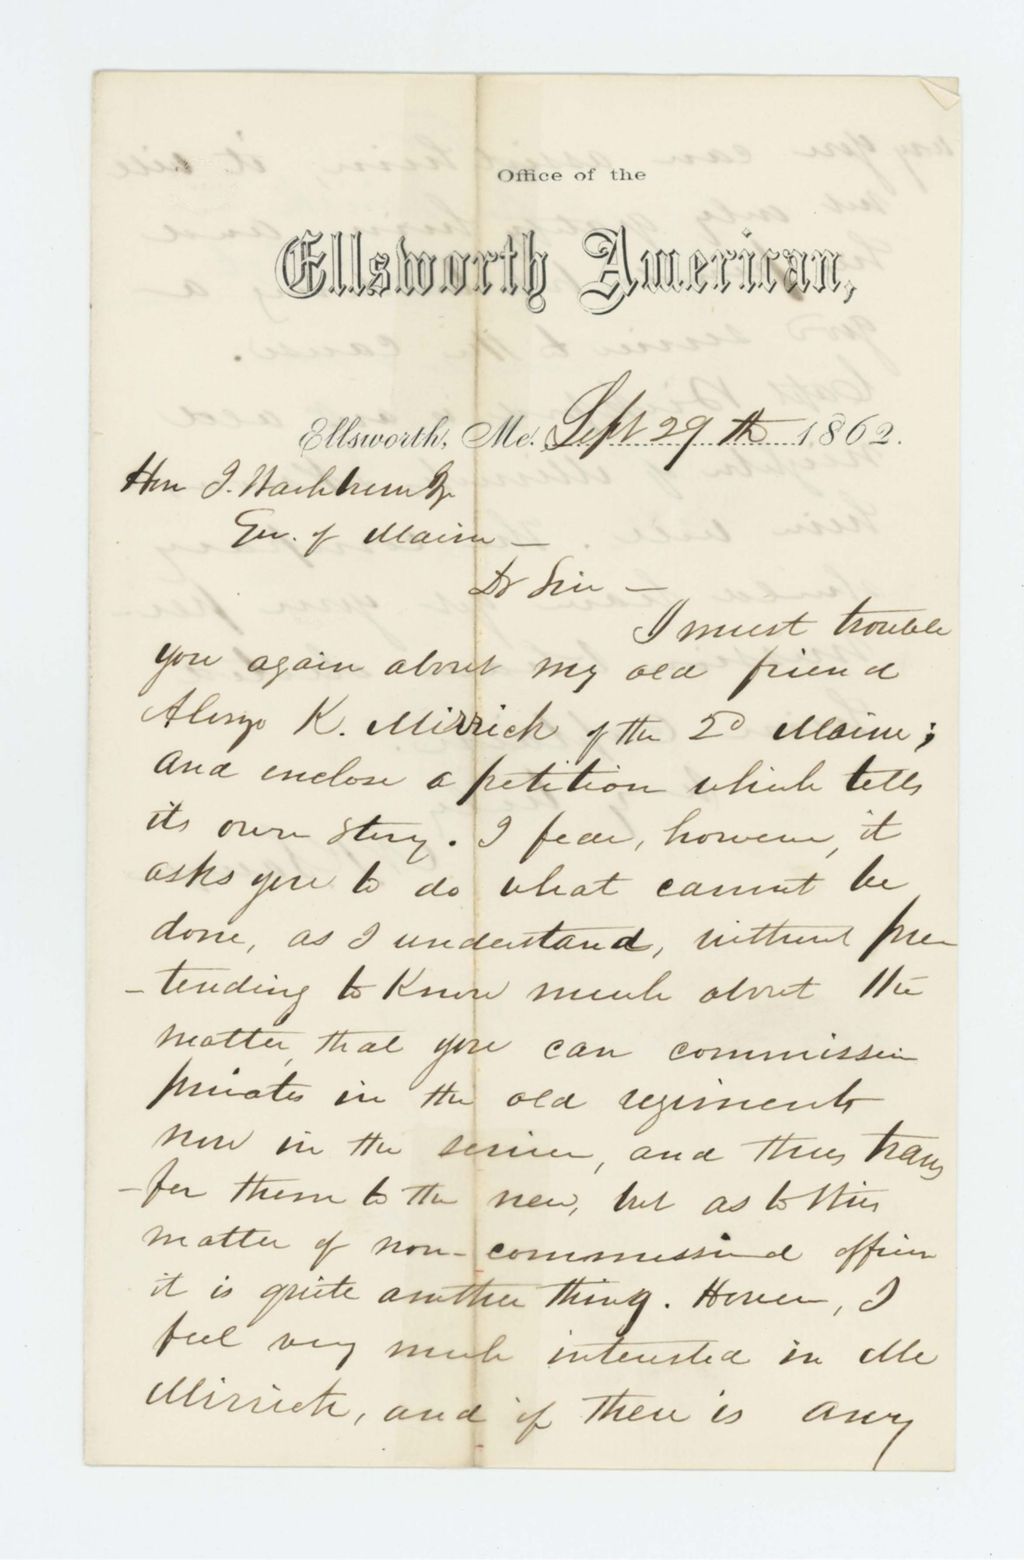 Office of the
Ellsworth American,
Ellsworth, Me. Sept 29th 1862.
Hon I. Washburn Jr
Gov. of Maine —
Dr Sir —
I must trouble
you again about my old friend
Alonzo K. Mirrick of the 2d Maine;
and enclose a petition which tells
its own story. I fear, however, it
asks you to do what cannot be
done, as I understand, without pre
-tending to know much about the
matter, that you can commission
privates in the old regiments
now in the service, and thus trans
-fer them to the new, but as to this
matter of non-commissioned officers
it is quite another thing. However, I
feel very much interested in Mr
Mirrick, and if there is any